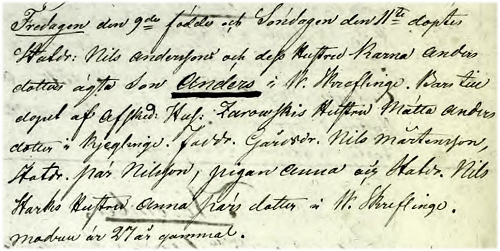 Fredagen den 9de föddes och Söndagen den 11te döptes
Statdr: Nils Anderssons och dess Hustru Karna Anders
dotters ägta Son Anders i W. Skreflinge. Bars till
dopet af Afsked: Hus: Zarowskis Hustru Matta Anders
dotter i Kjeglinge. Faddr. Gårdsdr. Nils Mårtensson,
Statdr. Pär Nilsson, pigan Anna och Statdr. Nils
Harks Hustru Anna Pärs dotter i W. Skreflinge.
modren är 27 år gammal.